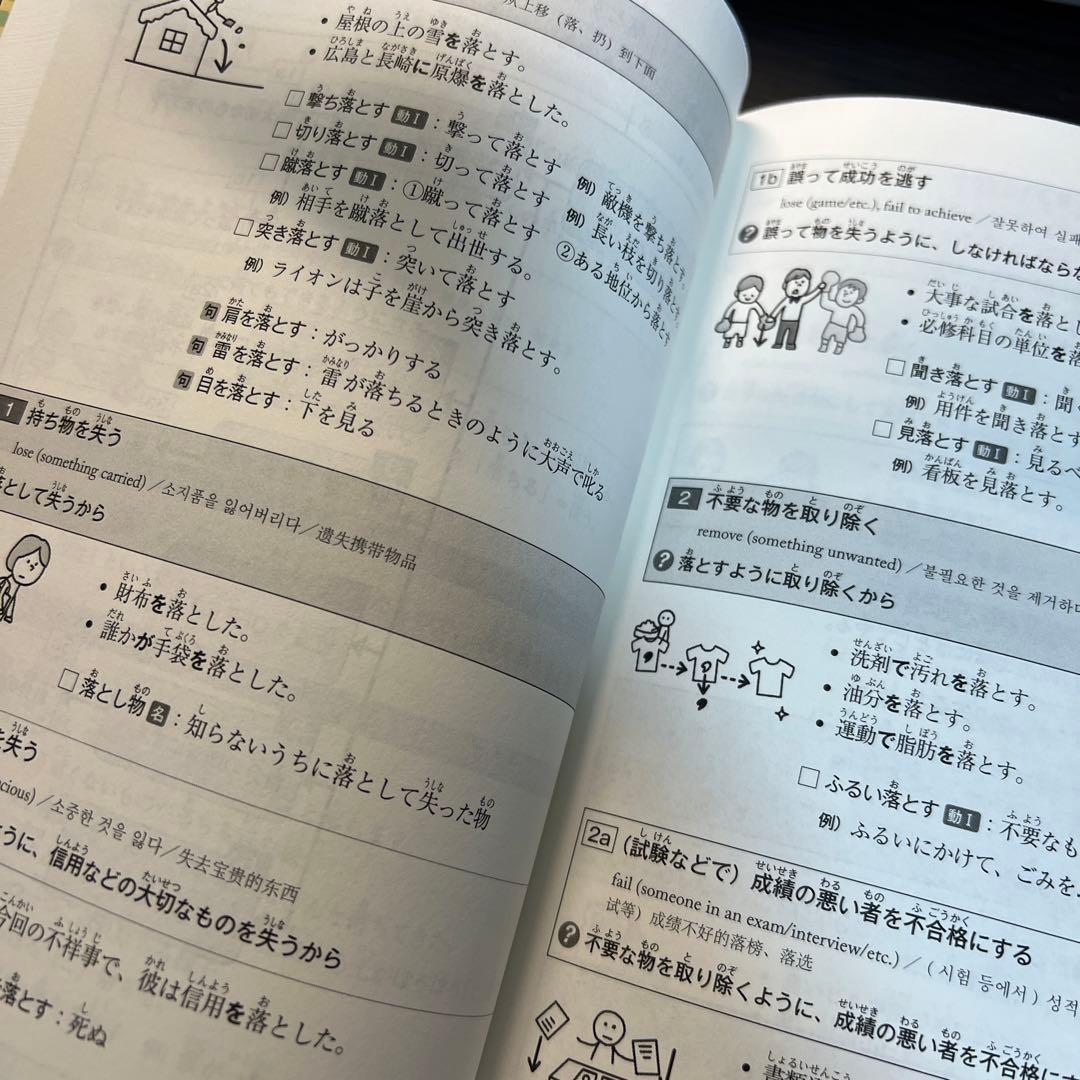 从上移（落、扔）到下面
・屋根の上の雪を落とす。
・広島と長崎に原爆を落とした。
□撃ち落とす 動I：撃って落とす 例）敵機を撃ち落とす。
□切り落とす 動I：切って落とす 例）長い枝を切り落とす。
□蹴落とす 動I：①蹴って落とす ②ある地位から落とす
例）相手を蹴落として出世する。
□突き落とす 動I：突いて落とす
例）ライオンは子を崖から突き落とす。
句 肩を落とす：がっかりする
句 雷を落とす：雷が落ちるときのように大声で叱る
句 目を落とす：下を見る
1 持ち物を失う
lose (something carried)／소지품을 잃어버리다／遗失携带物品
落として失うから
・財布を落とした。
・誰かが手袋を落とした。
□落とし物 名：知らないうちに落として失った物
を失う
cious)／소중한 것을 잃다／失去宝贵的东西
ように、信用などの大切なものを失うから
今回の不祥事で、彼は信用を落とした。
落とす：死ぬ
1b 誤って成功を逃す
lose (game/etc.), fail to achieve／잘못하여 실패
? 誤って物を失うように、しなければならな
・大事な試合を落とし
・必修科目の単位を落
□聞き落とす 動I：聞く
例）用件を聞き落とす
□見落とす 動I：見るべ
例）看板を見落とす。
2 不要な物を取り除く
remove (something unwanted)／불필요한 것을 제거하다
? 落とすように取り除くから
・洗剤で汚れを落とす。
・油分を落とす。
・運動で脂肪を落とす。
□ふるい落とす 動I：不要なも
例）ふるいにかけて、ごみを
2a （試験などで）成績の悪い者を不合格にする
fail (someone in an exam/interview/etc.)／（시험 등에서）성적
试等）成绩不好的落榜、落选
? 不要な物を取り除くように、成績の悪い者を不合格にす